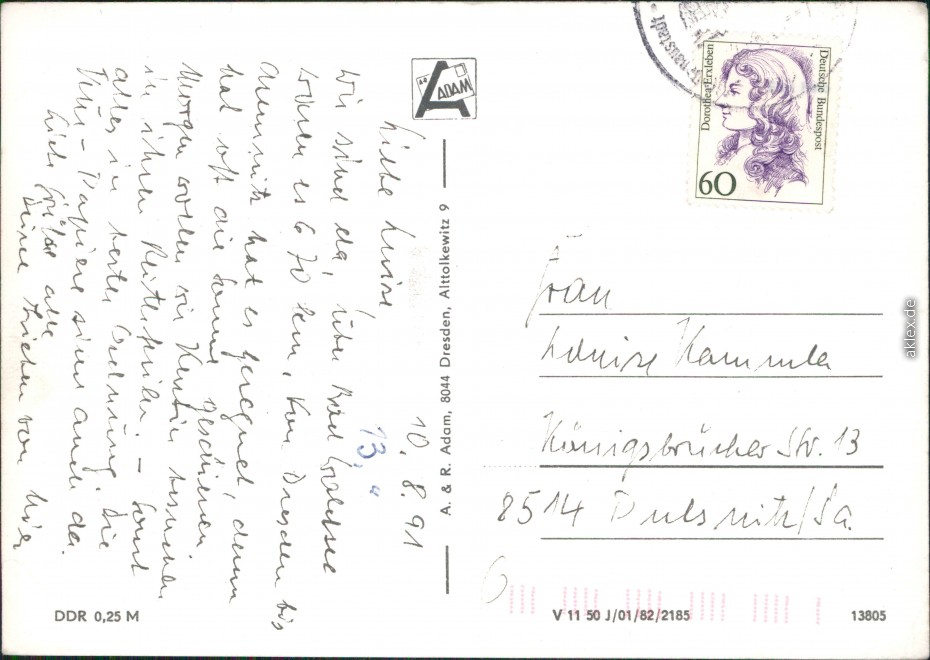 10. 8. 91
13. "
Liebe Luise!
Wir sind da, über Bad Waldsee
waren es 670 km, von Dresden bis
Chemnitz hat es geregnet, dann
hat oft die Sonne geschienen.
Morgen wollen wir Kerstin besuchen
in ihren – Sonst
alles in bester Ordnung, die
– Papiere sind auch da.
Liebe Grüße alle
Deine Lieben von hier
ADAM
A. & R. Adam, 8044 Dresden, Alttolkewitz 9
Dorothea Erxleben
Deutsche Bundespost
60
Frau
Louise Kammla
Königsbrücher Str. 13
8514 Pulsnitz/Sa.
DDR 0,25 M
V 11 50 J/01/82/2185
13805
aklex.de